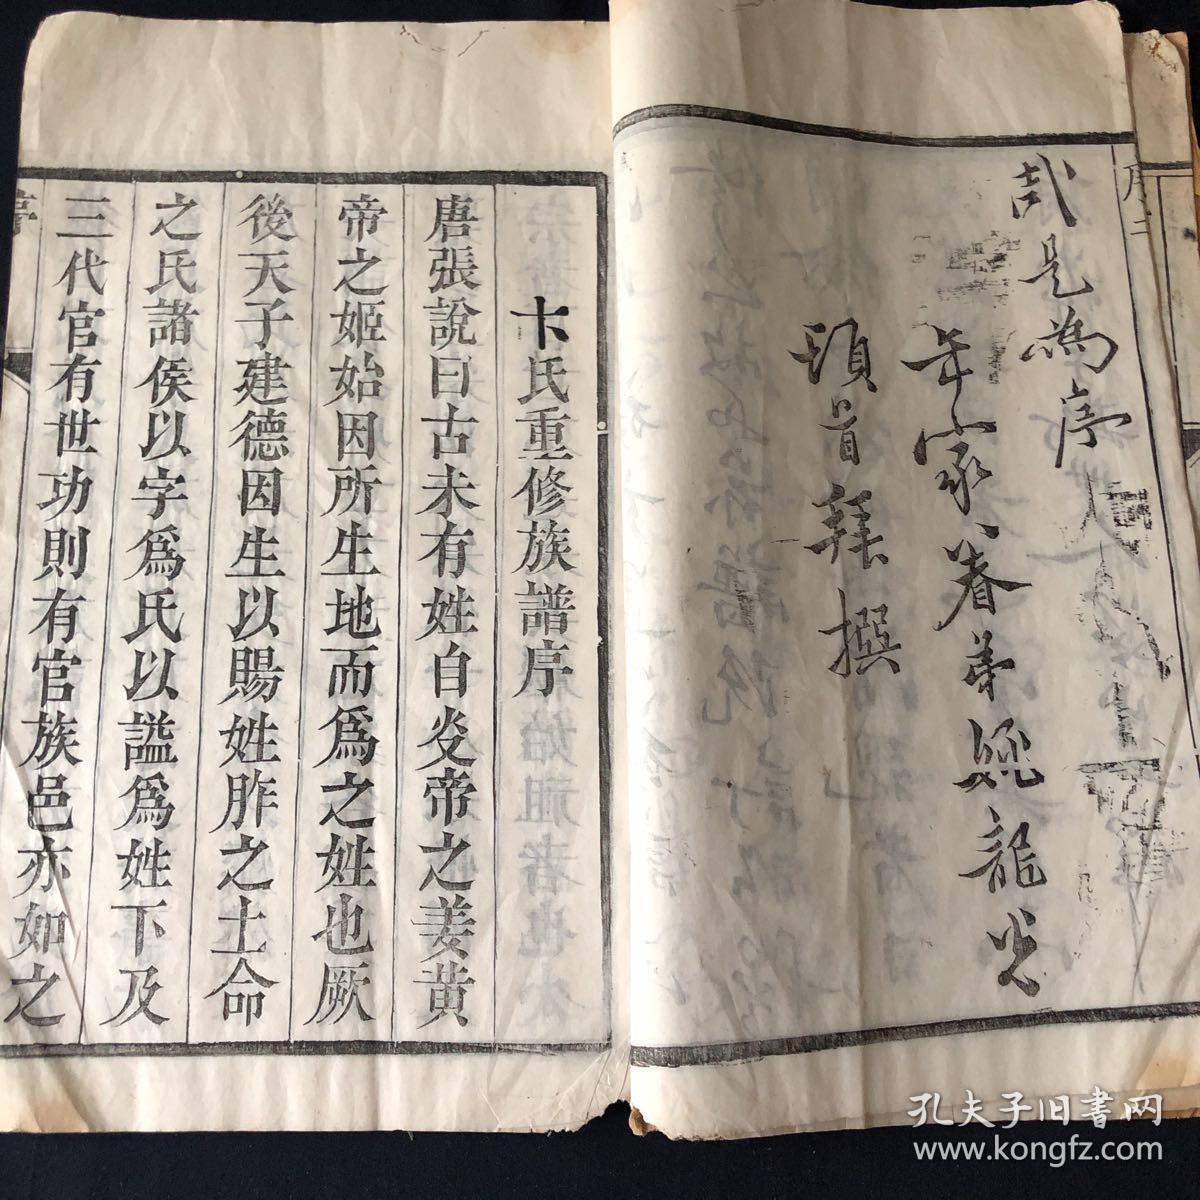 哉是為序
年家眷弟姚龍光
頓首拜撰
卞氏重修族譜序
唐張說曰古未有姓自炎帝之姜黄
帝之姬始因所生地而爲之姓也厥
後天子建德因生以賜姓胙之土命
之氏諸侯以字爲氏以謚爲姓下及
三代官有世功則有官族邑亦如之
孔夫子旧书网
www.kongfz.com